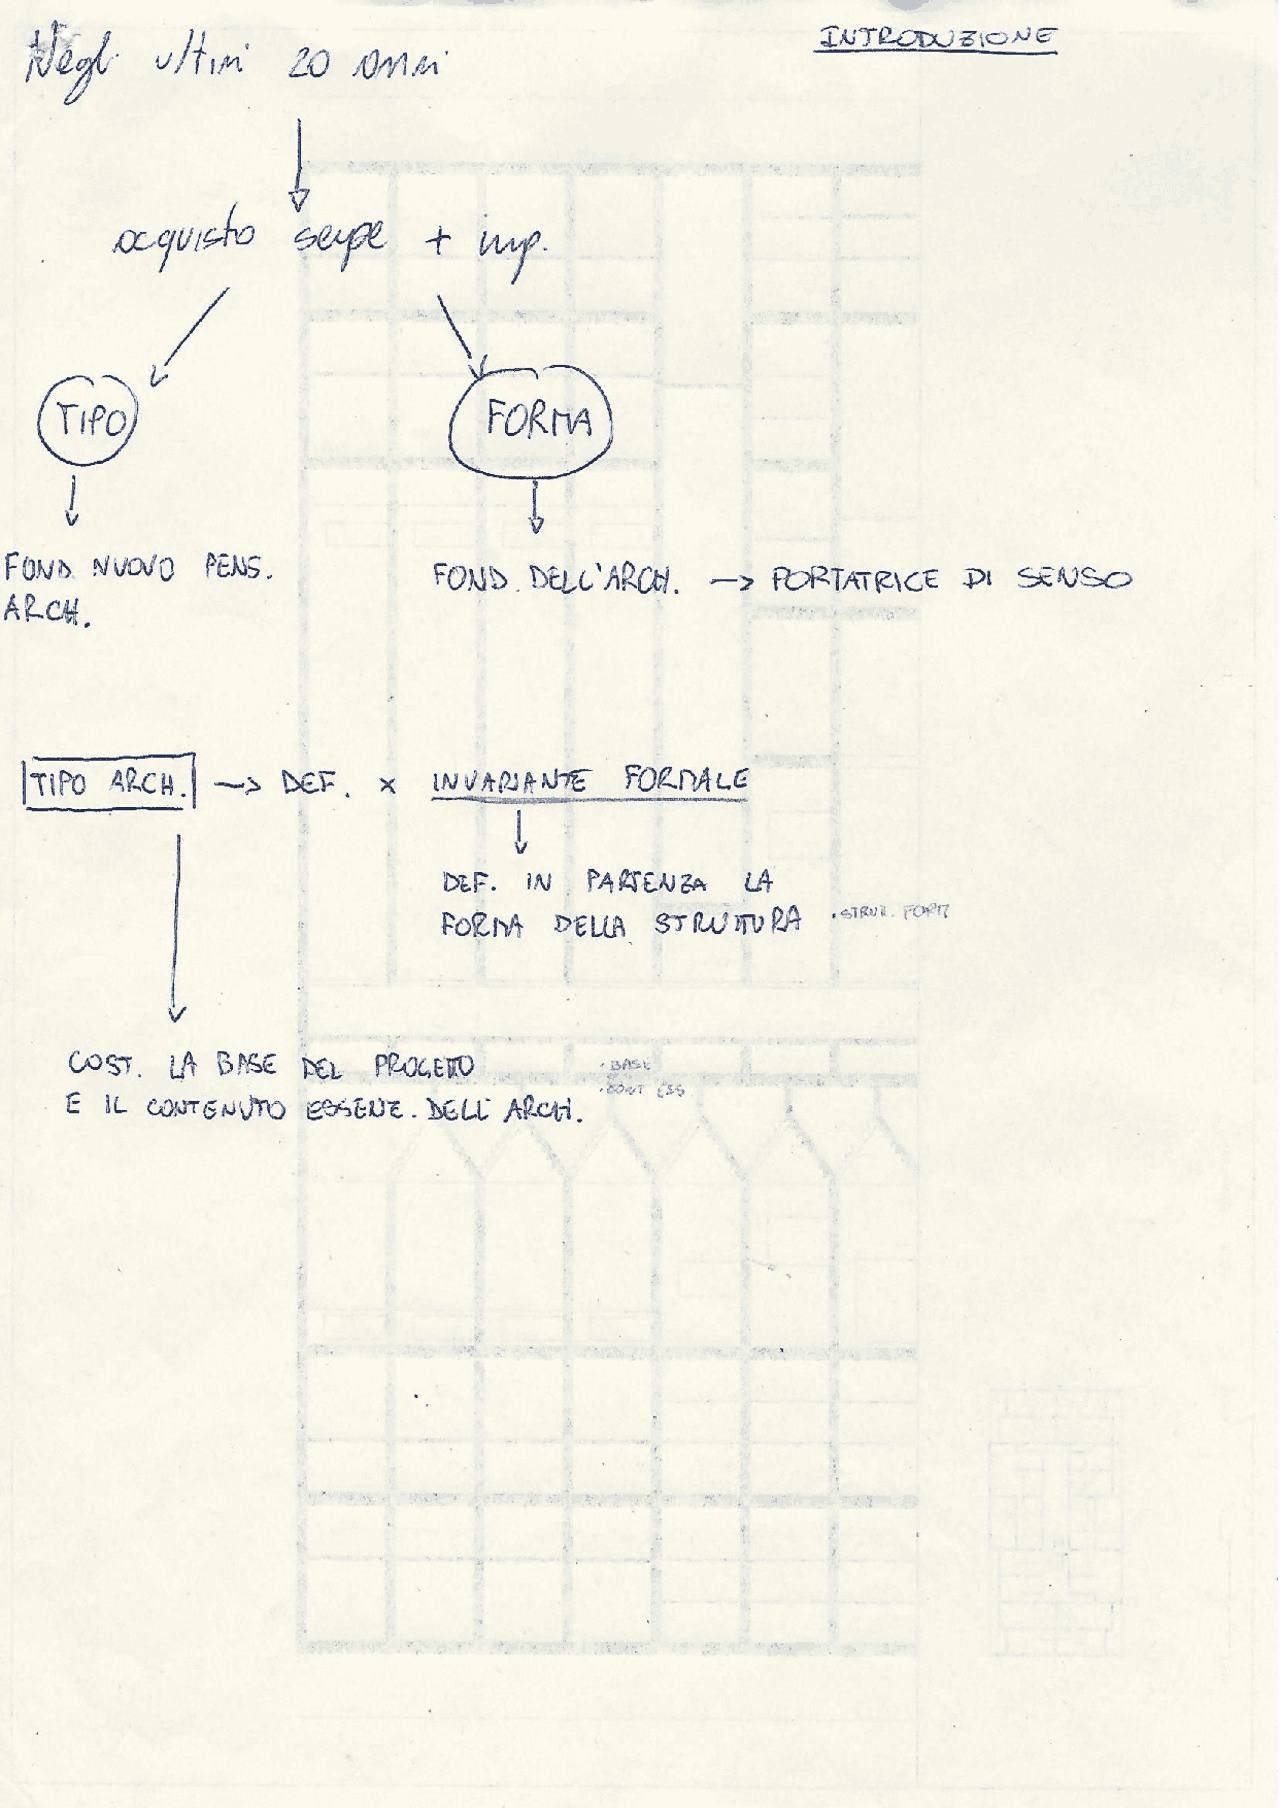 INTRODUZIONE
Negli ultimi 20 anni
acquisto sempe + imp.
TIPO
FORMA
FOND. NUOVO PENS.
ARCH.
FOND. DELL'ARCH. -> PORTATRICE DI SENSO
TIPO ARCH. -> DEF. x INVARIANTE FORMALE
DEF. IN PARTENZA LA
FORMA DELLA STRUTTURA • STRUT. FORM
COST. LA BASE DEL PROGETTO
E IL CONTENUTO ESSENZ. DELL'ARCH.
• BASE
• CONT ESS